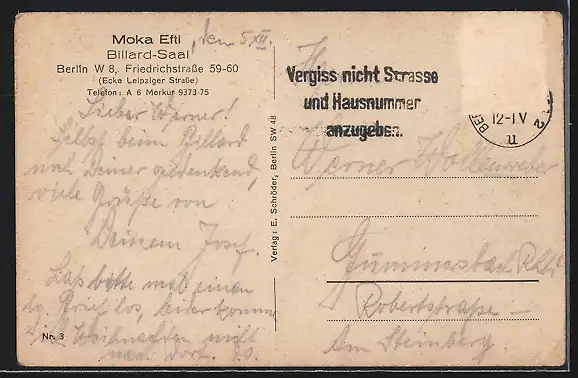 Moka Efti
Billard-Saal
Berlin W 8, Friedrichstraße 59-60
(Ecke Leipziger Straße)
Telefon: A 6 Merkur 9373-75
, den 5/XII.
Lieber Werner!
Selbst beim Billard
noch Deiner gedenkend,
viele Grüße von
Deinem Josef.
Lass bitte mal einen
Brief los, leider komme
ich Weihnachten nicht
nach dort. D.O.
Nr. 3
Verlag: E. Schröder, Berlin SW 48
Vergiss nicht Strasse
und Hausnummer
anzugeben.
BER 2
12-1 V
u
Herrn
Werner
Gummersbach Rhld
Robertstraße –
Am Steinberg.